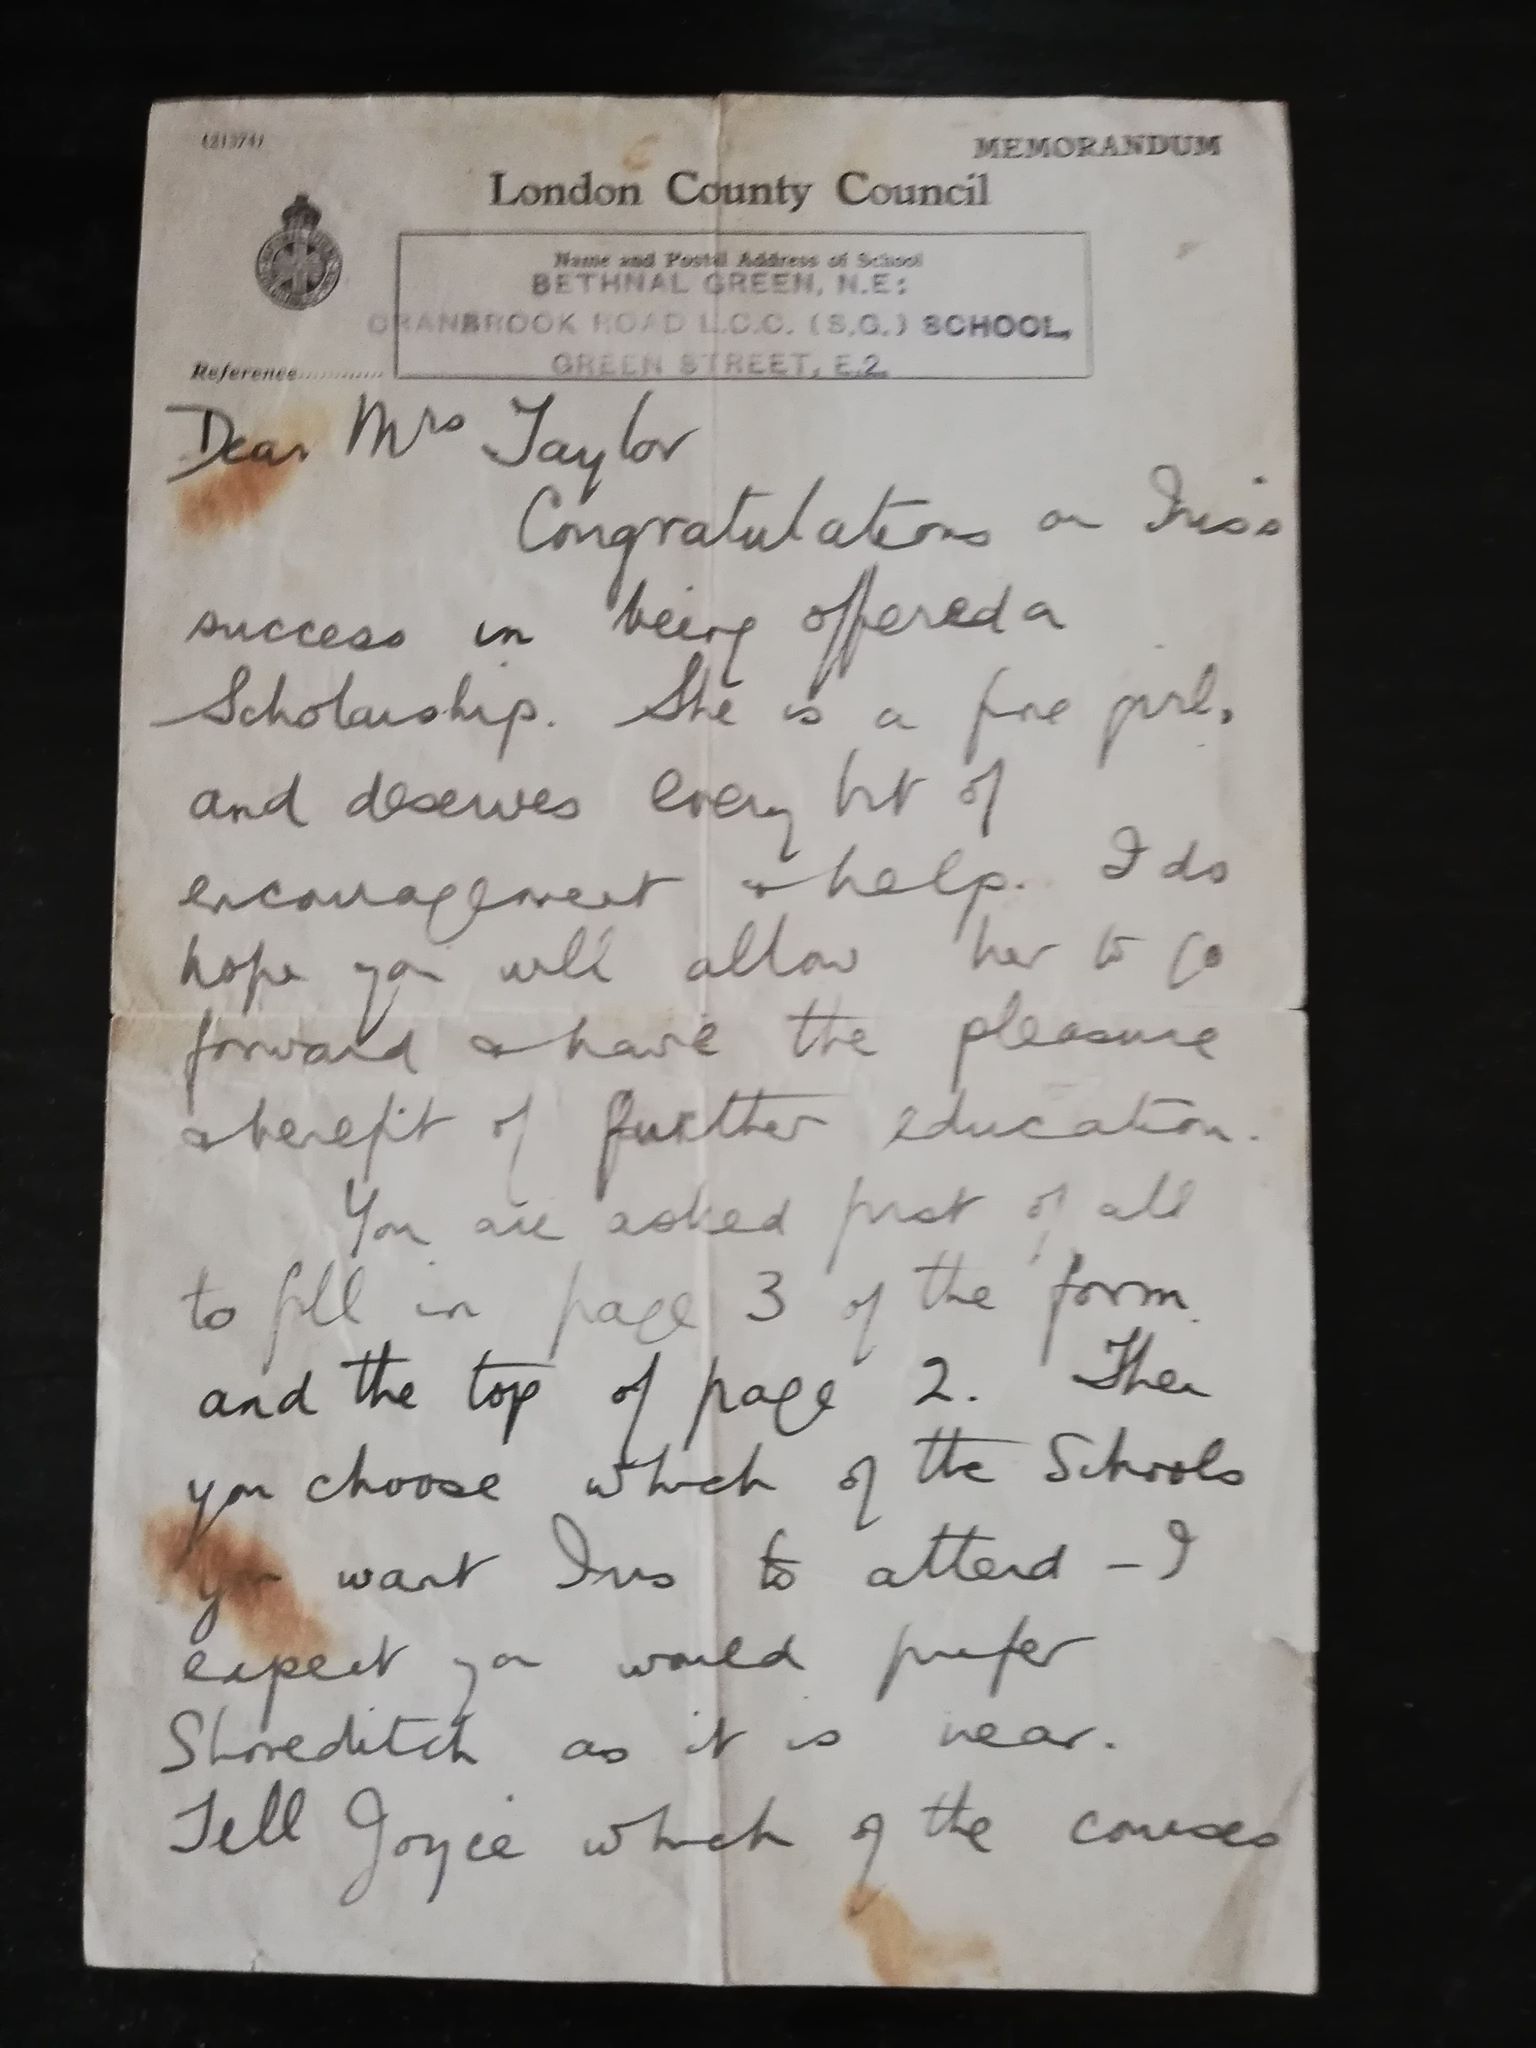 (21374)
MEMORANDUM
London County Council
Name and Postal Address of School
BETHNAL GREEN, N.E:
CRANBROOK ROAD L.C.C. (S.G.) SCHOOL,
GREEN STREET, E.2.
Reference............
Dear Mrs Taylor
Congratulations on Iris's
success in being offered a
Scholarship. She is a fine girl,
and deserves every bit of
encouragement & help. I do
hope you will allow her to go
forward & have the pleasure
& benefit of further education.
You are asked first of all
to fill in page 3 of the form
and the top of page 2. Then
you choose which of the Schools
you want Iris to attend – I
expect you would prefer
Shoreditch as it is near.
Tell Joyce which of the courses